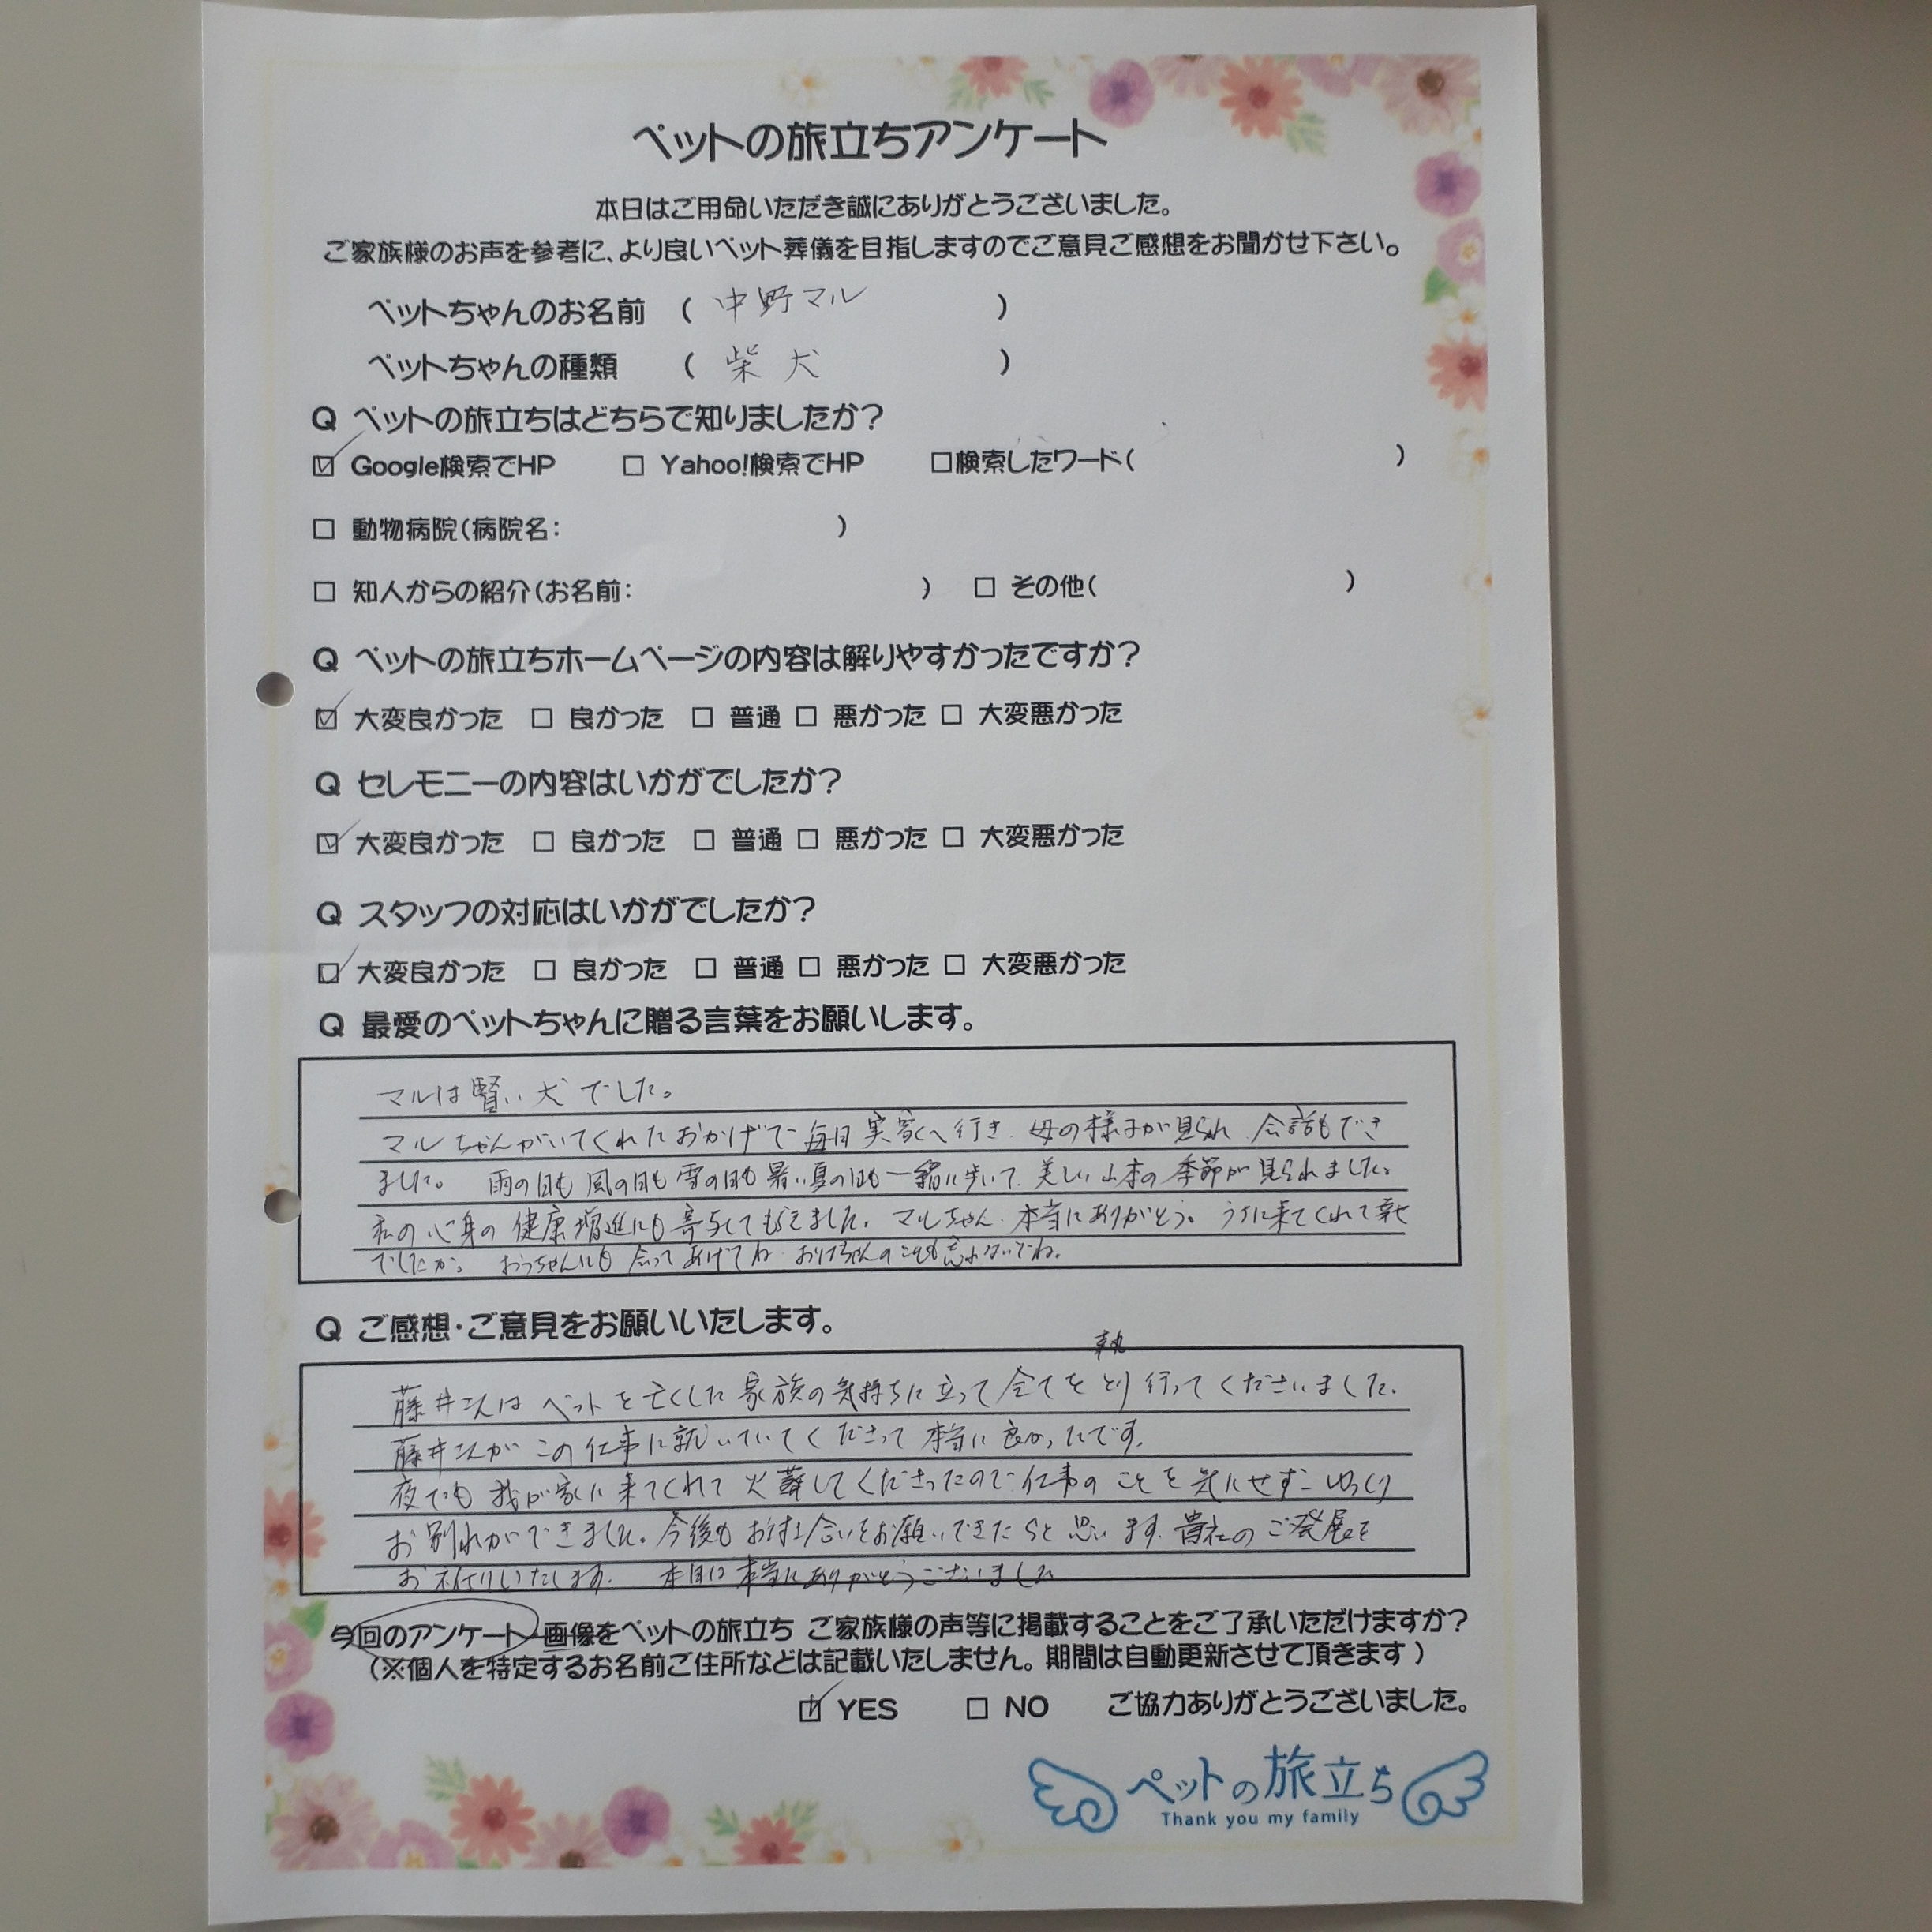 ペットの旅立ちアンケート
本日はご用命いただき誠にありがとうございました。
ご家族様のお声を参考に、より良いペット葬儀を目指しますのでご意見ご感想をお聞かせ下さい。
ペットちゃんのお名前 ( 中野マル )
ペットちゃんの種類 ( 柴犬 )
Q ペットの旅立ちはどちらで知りましたか?
☑ Google検索でHP □ Yahoo!検索でHP □検索したワード( )
□ 動物病院(病院名: )
□ 知人からの紹介(お名前: ) □ その他( )
Q ペットの旅立ちホームページの内容は解りやすかったですか?
☑ 大変良かった □ 良かった □ 普通 □ 悪かった □ 大変悪かった
Q セレモニーの内容はいかがでしたか?
☑ 大変良かった □ 良かった □ 普通 □ 悪かった □ 大変悪かった
Q スタッフの対応はいかがでしたか?
☑ 大変良かった □ 良かった □ 普通 □ 悪かった □ 大変悪かった
Q 最愛のペットちゃんに贈る言葉をお願いします。
マルは賢い犬でした。
マルちゃんがいてくれたおかげで毎日実家へ行き、母の様子が見られ、会話もでき
ました。 雨の日も風の日も雪の日も暑い夏の日も一緒に歩いて、美しい山本の季節が見られました。
私の心身の健康増進にも寄与してもらえました。マルちゃん、本当にありがとう。うちに来てくれて幸せ
でしたか。 おっちゃんにも会ってあげてね のことも忘れないでね。
Q ご感想・ご意見をお願いいたします。
執
藤井さんはペットを亡くした家族の気持ちに立って全てをとり行ってくださいました。
藤井さんがこの仕事に就いていてくださって本当に良かったです。
夜でも我が家に来てくれて火葬してくださったので仕事のことを気にせず、ゆっくり
お別れができました。今後もお付き合いをお願いできたらと思います。貴社のご発展を
お祈りいたします。 本日は本当にありがとうございました
今回のアンケート・画像をペットの旅立ち ご家族様の声等に掲載することをご了承いただけますか?
(※個人を特定するお名前ご住所などは記載いたしません。期間は自動更新させて頂きます)
☑ YES □ NO ご協力ありがとうございました。
ペットの旅立ち
Thank you my family